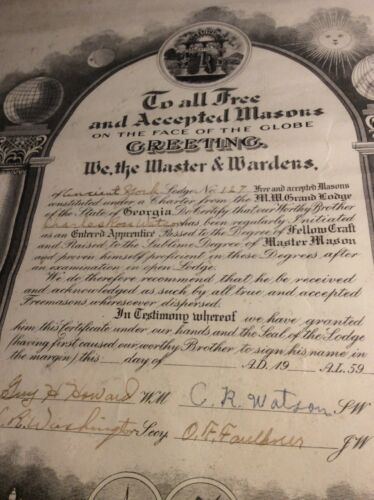 To all Free
and Accepted Masons
ON THE FACE OF THE GLOBE
GREETING.
We, the Master & Wardens,
of Ancient York Lodge No. 127 Free and accepted Masons
constituted under a Charter from the M.W. Grand Lodge
of the State of Georgia Do Certify that our Worthy Brother
Charles Ross Watson has been regularly Initiated
as an Entered Apprentice Passed to the Degree of Fellow Craft
and Raised to the Sublime Degree of Master Mason
and proven himself proficient in these Degrees after
an examination in open Lodge.
We do therefore recommend that he be received
and acknowledged as such by all true and accepted
Freemasons wheresoever dispersed.
In Testimony whereof we have granted
him this certificate under our hands and the Seal of the Lodge
(having first caused our worthy Brother to sign his name in
the margin) this day of A.D. 19 A.L. 59
Guy H Howard W.M. C. R. Watson S.W.
Washington Secy. O. F. Faulkner J.W.